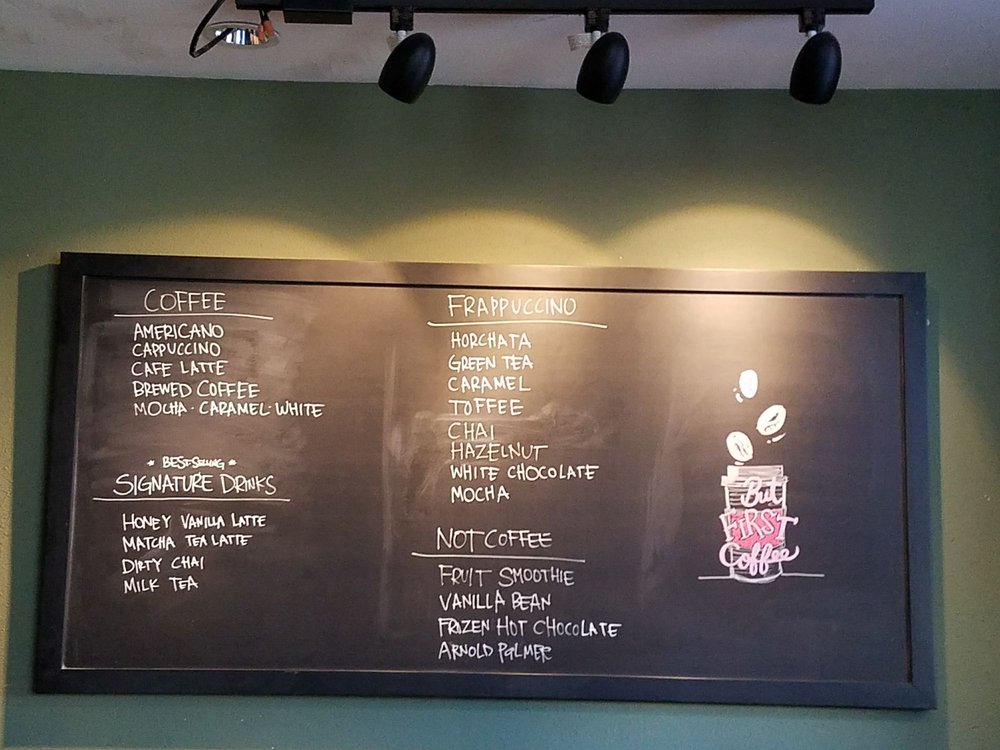 COFFEE
AMERICANO
CAPPUCCINO
CAFE LATTE
BREWED COFFEE
MOCHA · CARAMEL · WHITE
* BEST SELLING *
SIGNATURE DRINKS
HONEY VANILLA LATTE
MATCHA TEA LATTE
DIRTY CHAI
MILK TEA
FRAPPUCCINO
HORCHATA
GREEN TEA
CARAMEL
TOFFEE
CHAI
HAZELNUT
WHITE CHOCOLATE
MOCHA
NOT COFFEE
FRUIT SMOOTHIE
VANILLA BEAN
FROZEN HOT CHOCOLATE
ARNOLD PALMER
But
FIRST
Coffee